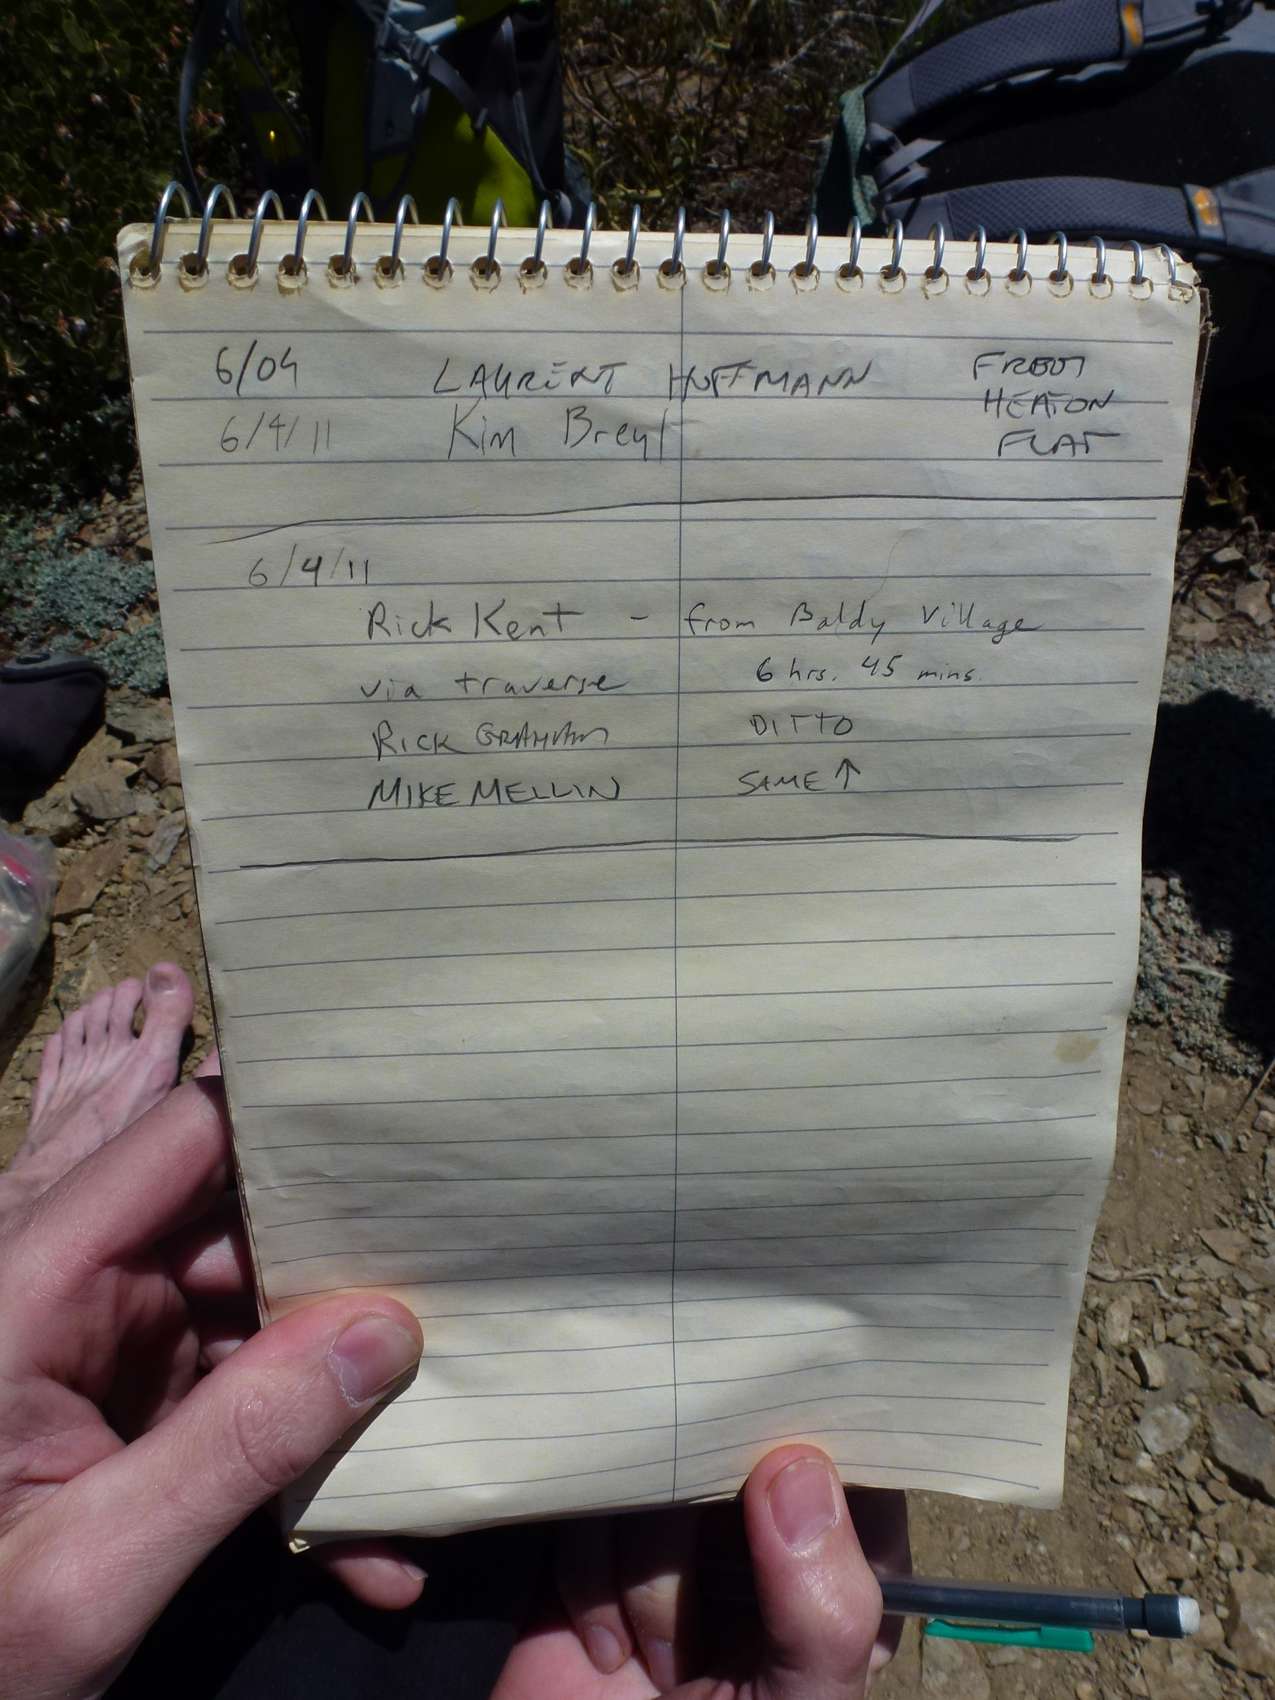 6/04 LAURENT HOFFMANN FROM
HEATON
6/4/11 Kim Breyl FLAT
6/4/11
Rick Kent - from Baldy Village
via traverse 6 hrs. 45 mins.
RICK GRAHAM DITTO
MIKE MELLIN SAME ↑